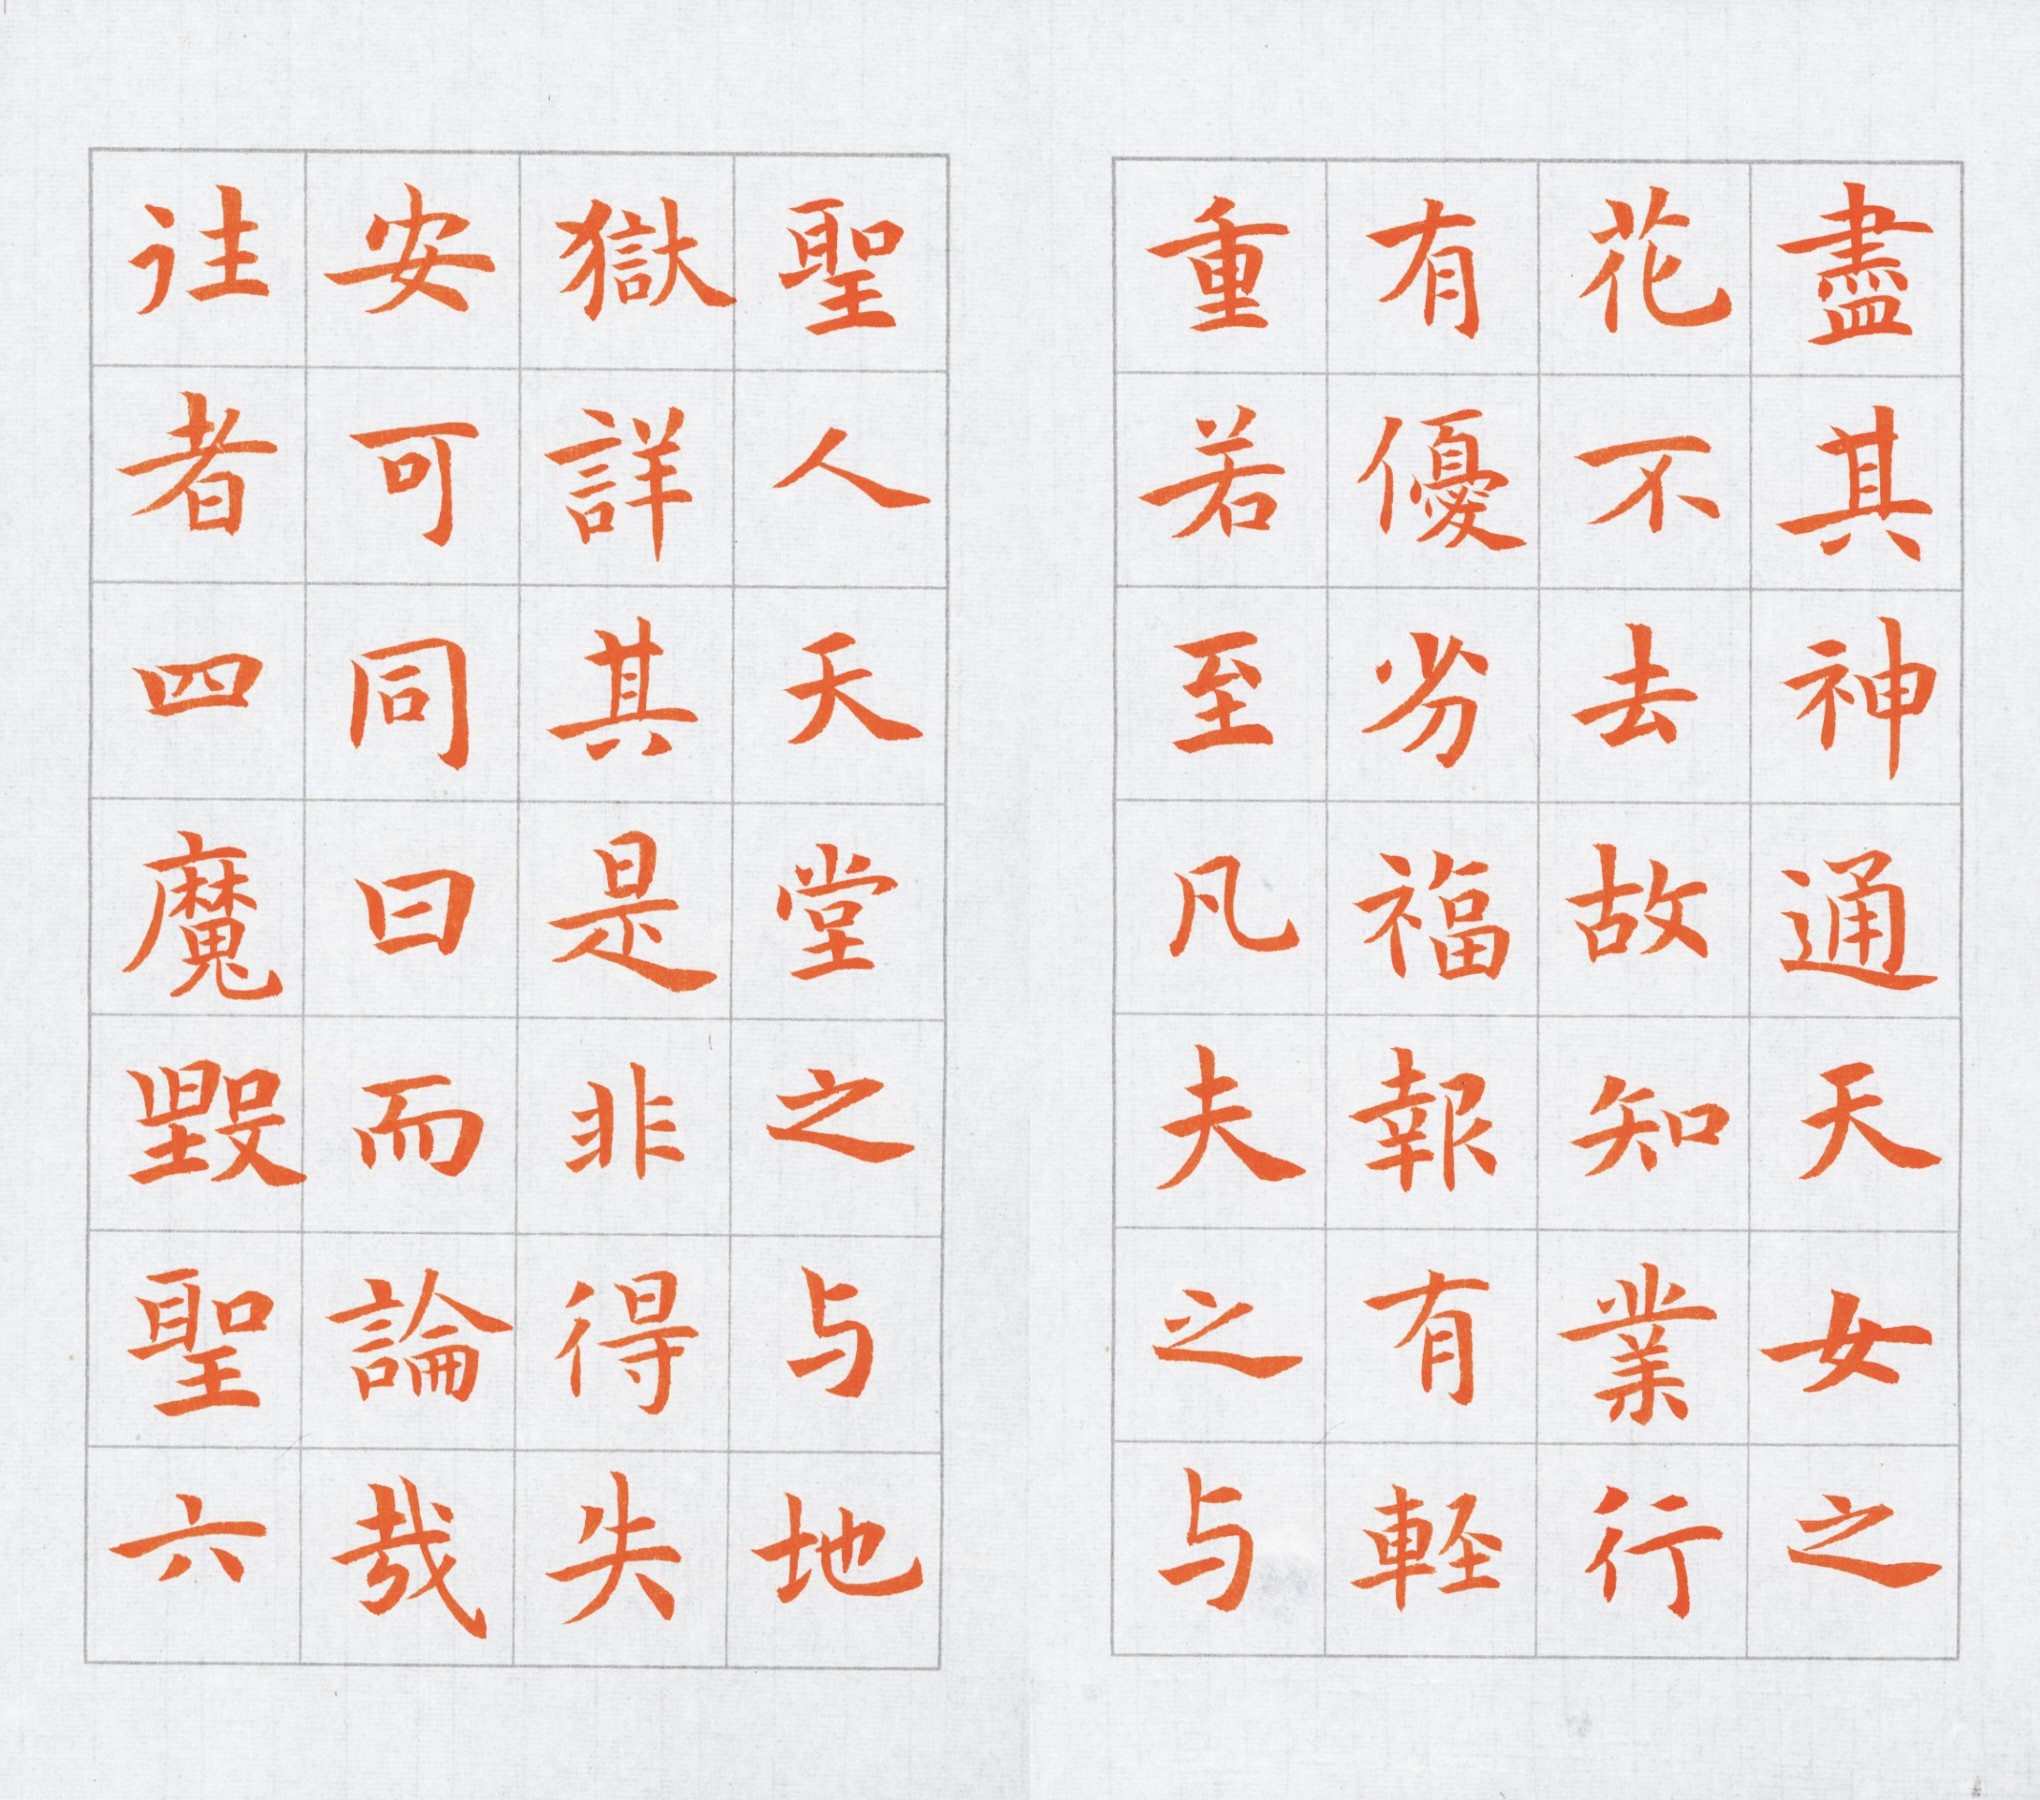 盡其神通天女之
花不去故知業行
有優劣福報有軽
重若至凡夫之与
聖人天堂之与地
獄詳其是非得失
安可同曰而論哉
往者四魔毀聖六